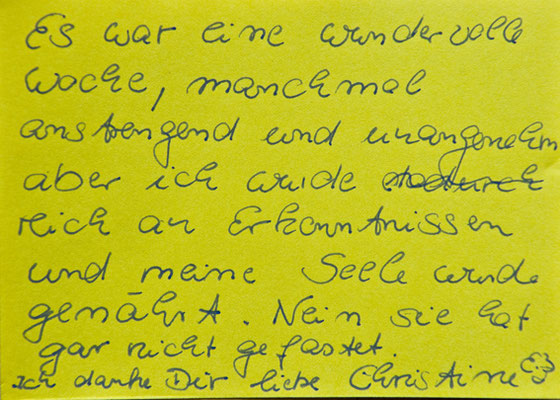 Es war eine wundervolle
Woche, manchmal
anstrengend und unangenehm
aber ich wurde
reich an Erkenntnissen
und meine Seele wurde
genährt. Nein sie hat
gar nicht gefastet.
Ich danke Dir liebe Christine